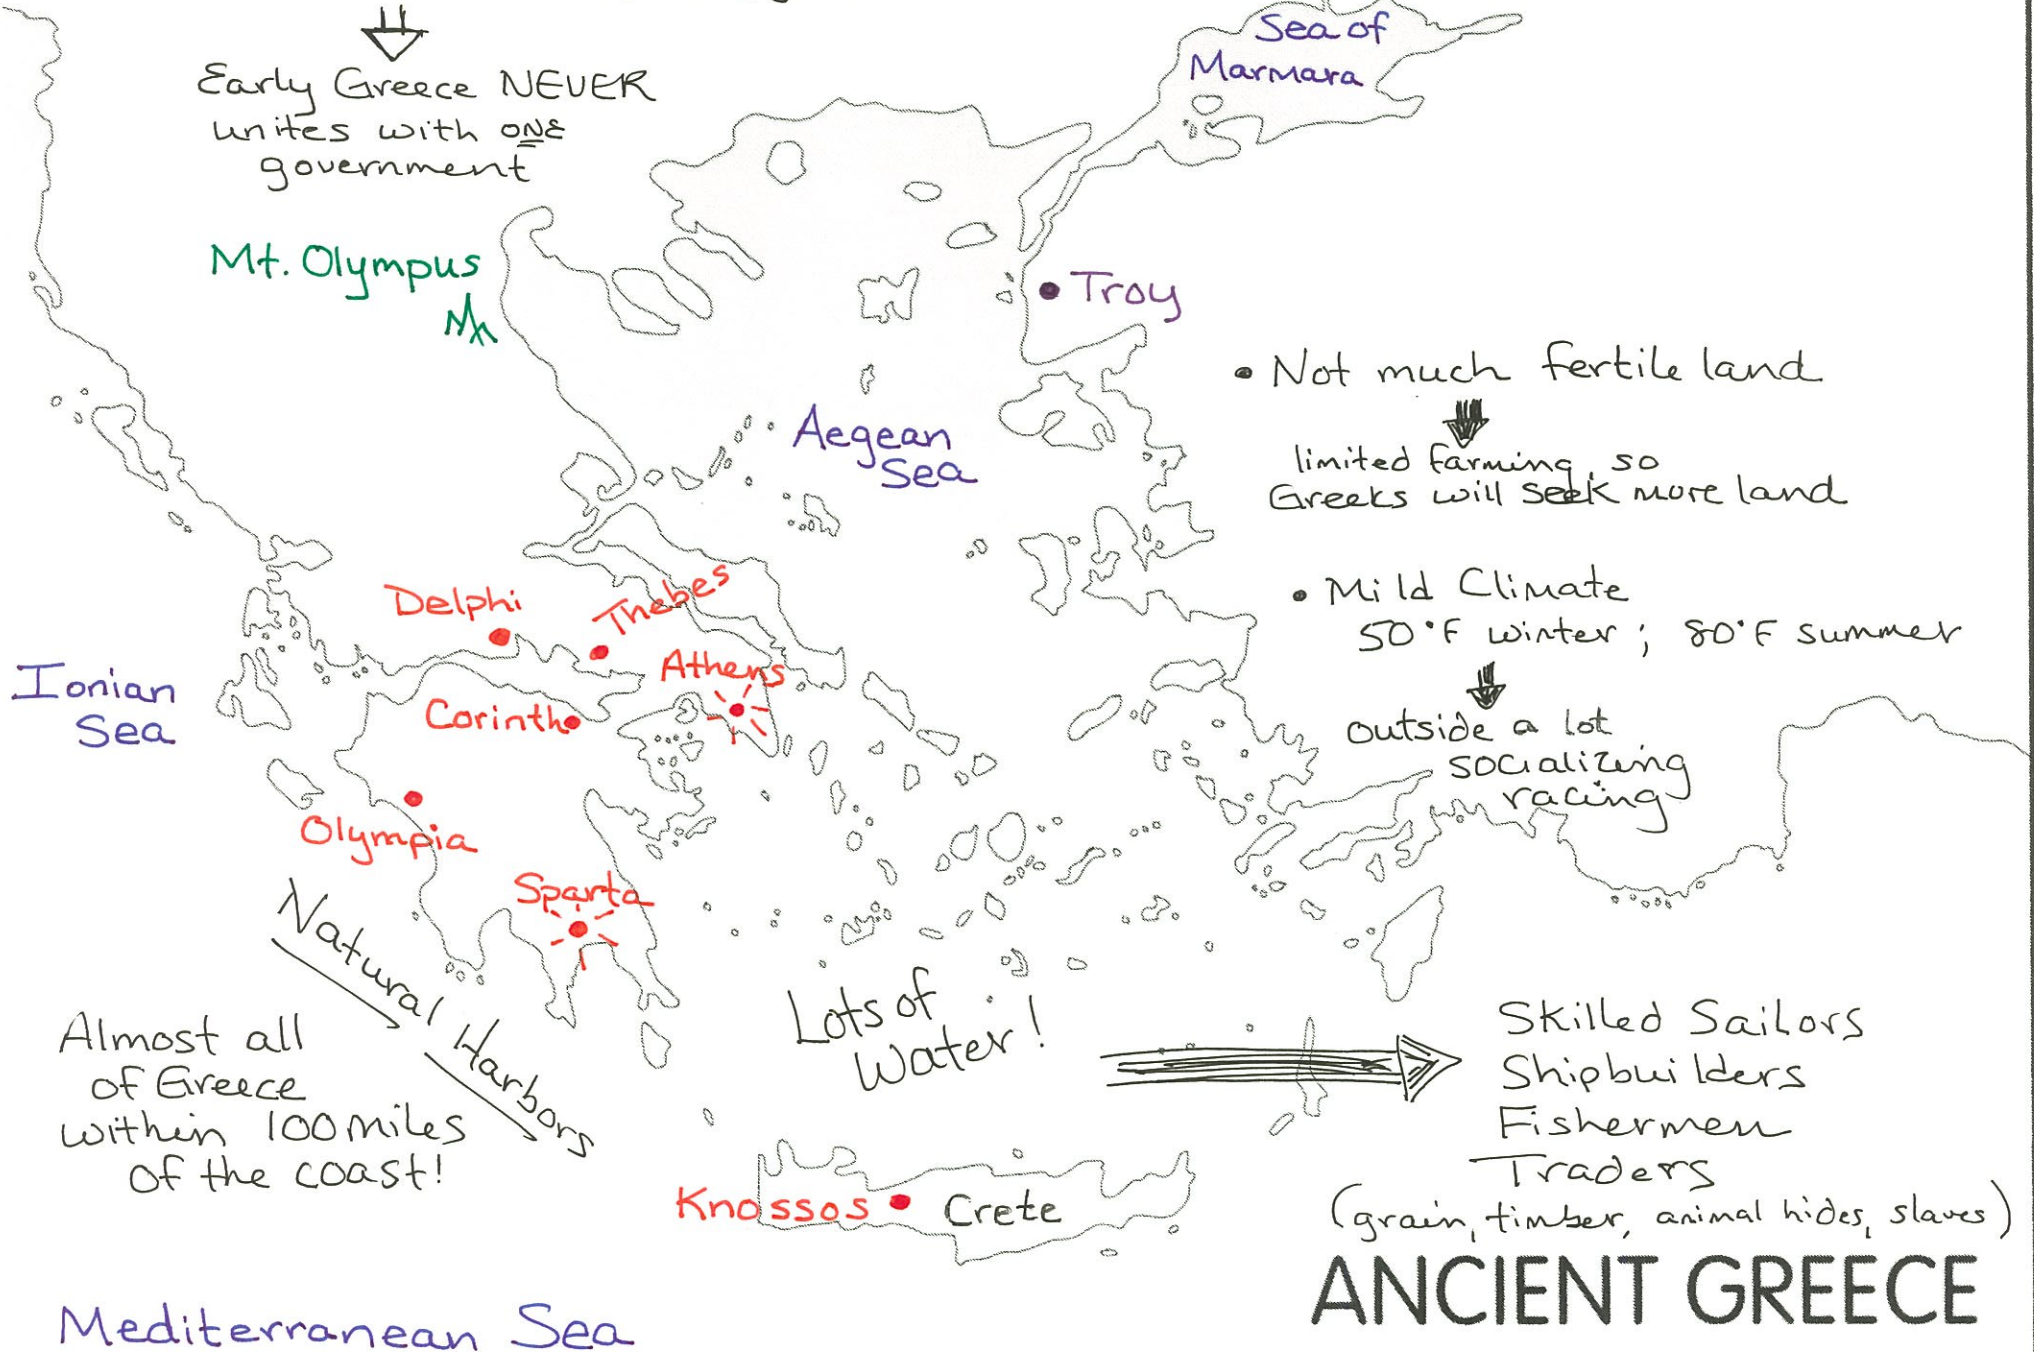 Early Greece NEVER
unites with ONE
government
Sea of
Marmara
Mt. Olympus
Troy
• Not much fertile land
limited farming, so
Greeks will seek more land
Aegean
Sea
• Mild Climate
50°F winter; 80°F summer
outside a lot
socializing
racing
Delphi
Thebes
Athens
Ionian
Sea
Corinth
Olympia
Sparta
Natural Harbors
Almost all
of Greece
within 100 miles
of the coast!
Lots of
Water!
Skilled Sailors
Shipbuilders
Fishermen
Traders
(grain, timber, animal hides, slaves)
Knossos
Crete
ANCIENT GREECE
Mediterranean Sea